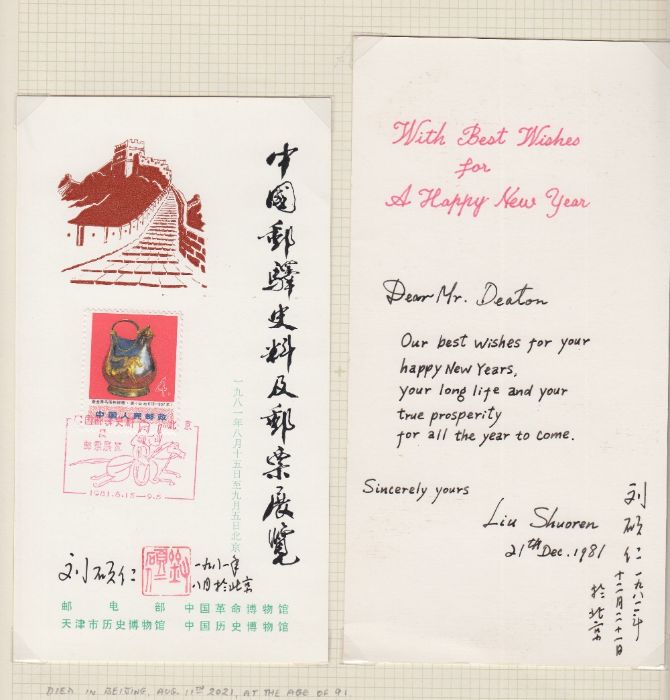 中國郵驛史料及郵票展覽
一九八一年八月十五日至九月五日北京
4分
中国人民邮政
北京
邮票展览
1981.8.15—9.5
刘硕仁
一九八一年
八月於北京
邮电部 中国革命博物馆
天津市历史博物馆 中国历史博物馆
With Best Wishes
for
A Happy New Year
Dear Mr. Deaton
Our best wishes for your
happy New Years,
your long life and your
true prosperity
for all the year to come.
Sincerely yours
Liu Shuoren
21th Dec. 1981
刘硕仁
一九八一年
十二月二十一日
於北京
DIED IN BEIJING, AUG. 11TH 2021, AT THE AGE OF 91.